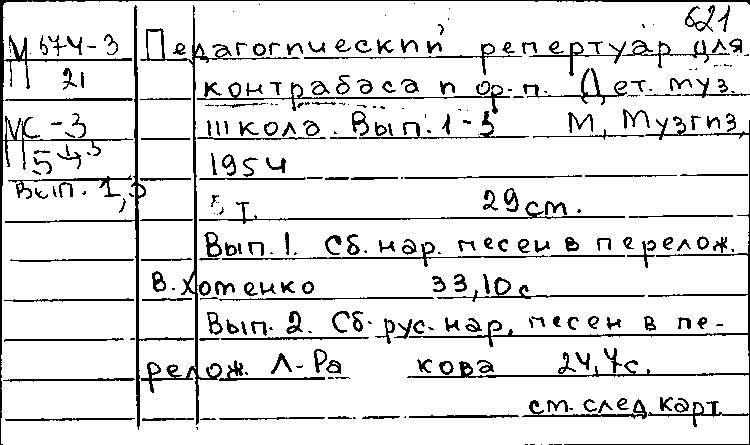 621
М 574-3 Педагогический репертуар для
П 21 контрабаса и ф.п. Дет. муз.
МС-3 школа. Вып. 1-3 М, Музгиз,
П 5 1954
Вып. 1,3 т. 29 см.
Вып. 1. Сб. нар. песен в перелож.
В. Хоменко 33,10с
Вып. 2. Сб. рус. нар. песен в пе-
релож. Л-Ра кова 24,4с.
см. след. карт